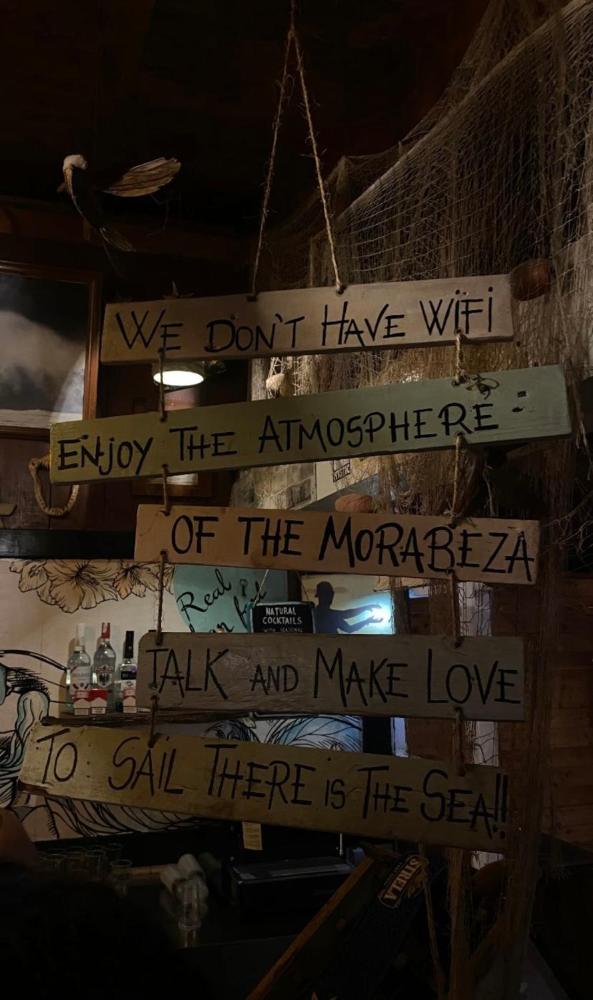 WE DON'T HAVE WiFi
ENJOY THE ATMOSPHERE
OF THE MORABEZA
TALK AND MAKE LOVE
TO SAIL THERE iS THE SEA!!
Real
NATURAL
COCKTAILS